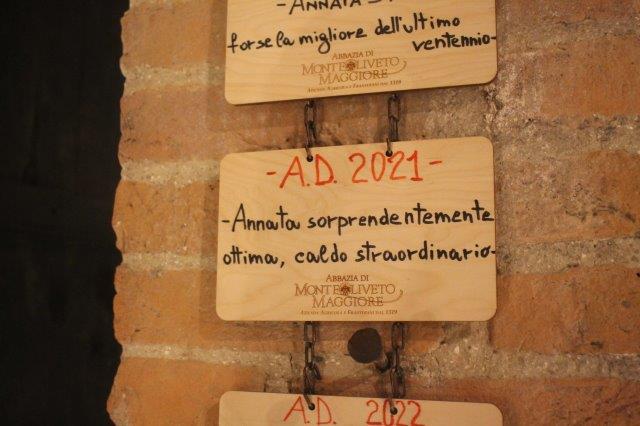 forse la migliore dell'ultimo
ventennio-
ABBAZIA DI
MONTE OLIVETO
MAGGIORE
-A.D. 2021-
-Annata sorprendentemente
ottima, caldo straordinario-
ABBAZIA DI
MONTE OLIVETO
MAGGIORE
AZIENDA AGRICOLA E FRANTOIANI DAL 1319
A.D. 2022